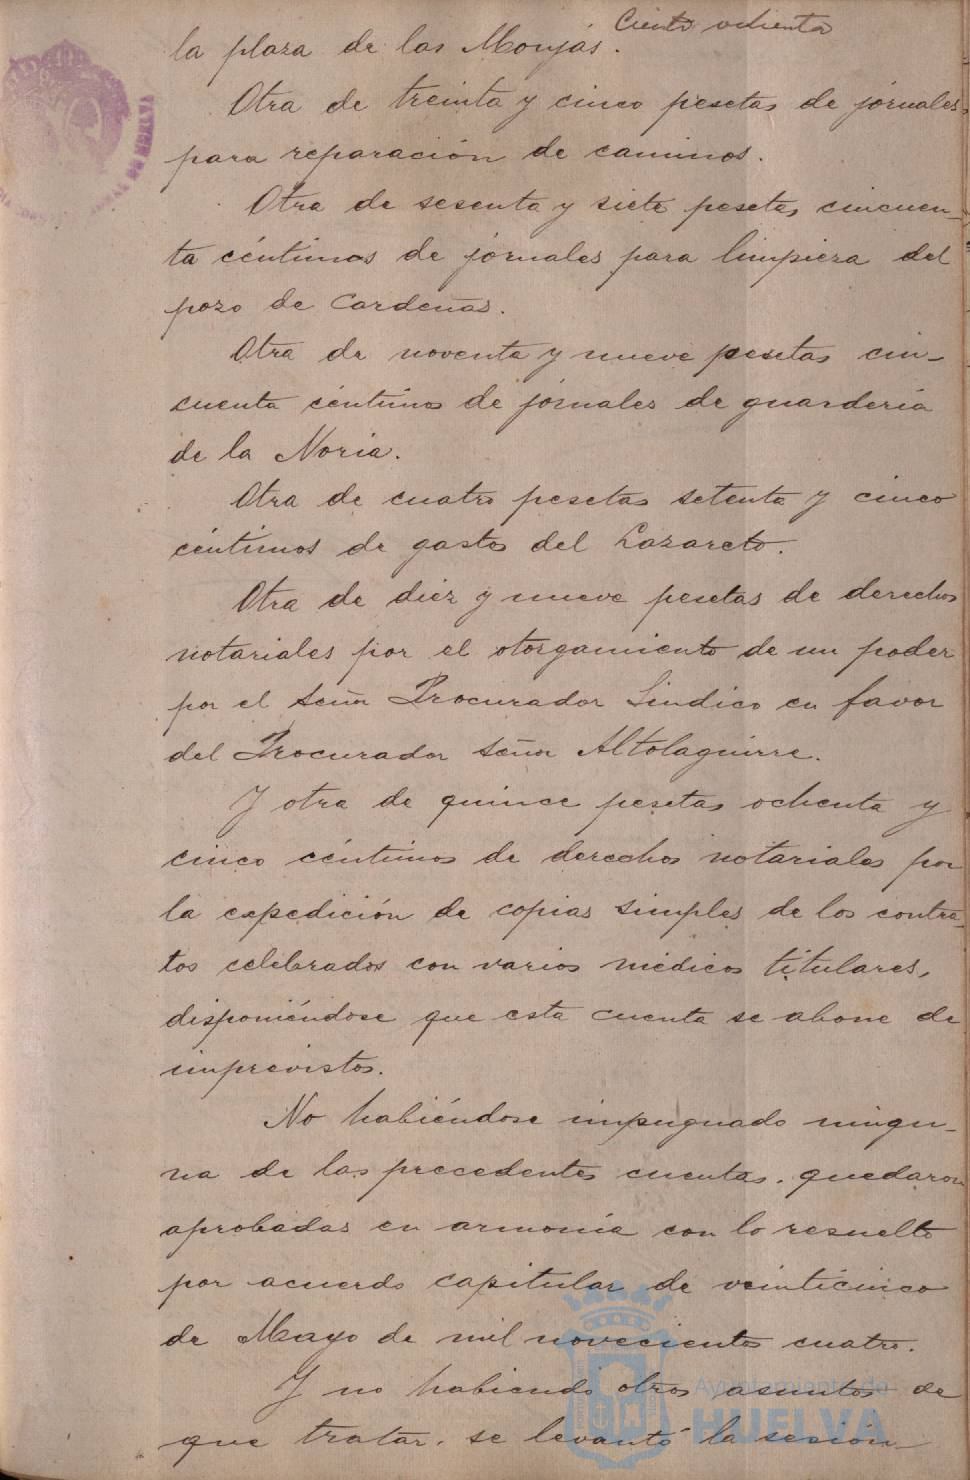 Ciento ochenta
la plaza de las Monjás.
Otra de treinta y cinco pesetas de jórnales
para reparación de caminos.
Otra de sesenta y siete pesetas cincuen-
ta céntimos de jórnales para limpieza del
pozo de Cardeñas.
Otra de noventa y nueve pesetas cin-
cuenta céntimos de jórnales de guardería
de la Noria.
Otra de cuatro pesetas setenta y cinco
céntimos de gastos del Lazareto.
Otra de diez y nueve pesetas de derechos
notariales por el otorgamiento de un poder
por el señor Procurador Sindico en favor
del Procurador señor Altolaguirre.
Y otra de quince pesetas ochenta y
cinco céntimos de derechos notariales por
la expedición de copias simples de los contra-
tos celebrados con varios médicos titulares,
disponiéndose que esta cuenta se abone de
imprevistos.
No habiéndose impugnado ningu-
na de las precedentes cuentas, quedaron
aprobadas en armonía con lo resuelto
por acuerdo capitular de veinticinco
de Mayo de mil novecientos cuatro.
Y no habiendo otros asuntos de
que tratar, se levantó la sesión
Ayuntamiento de
HUELVA